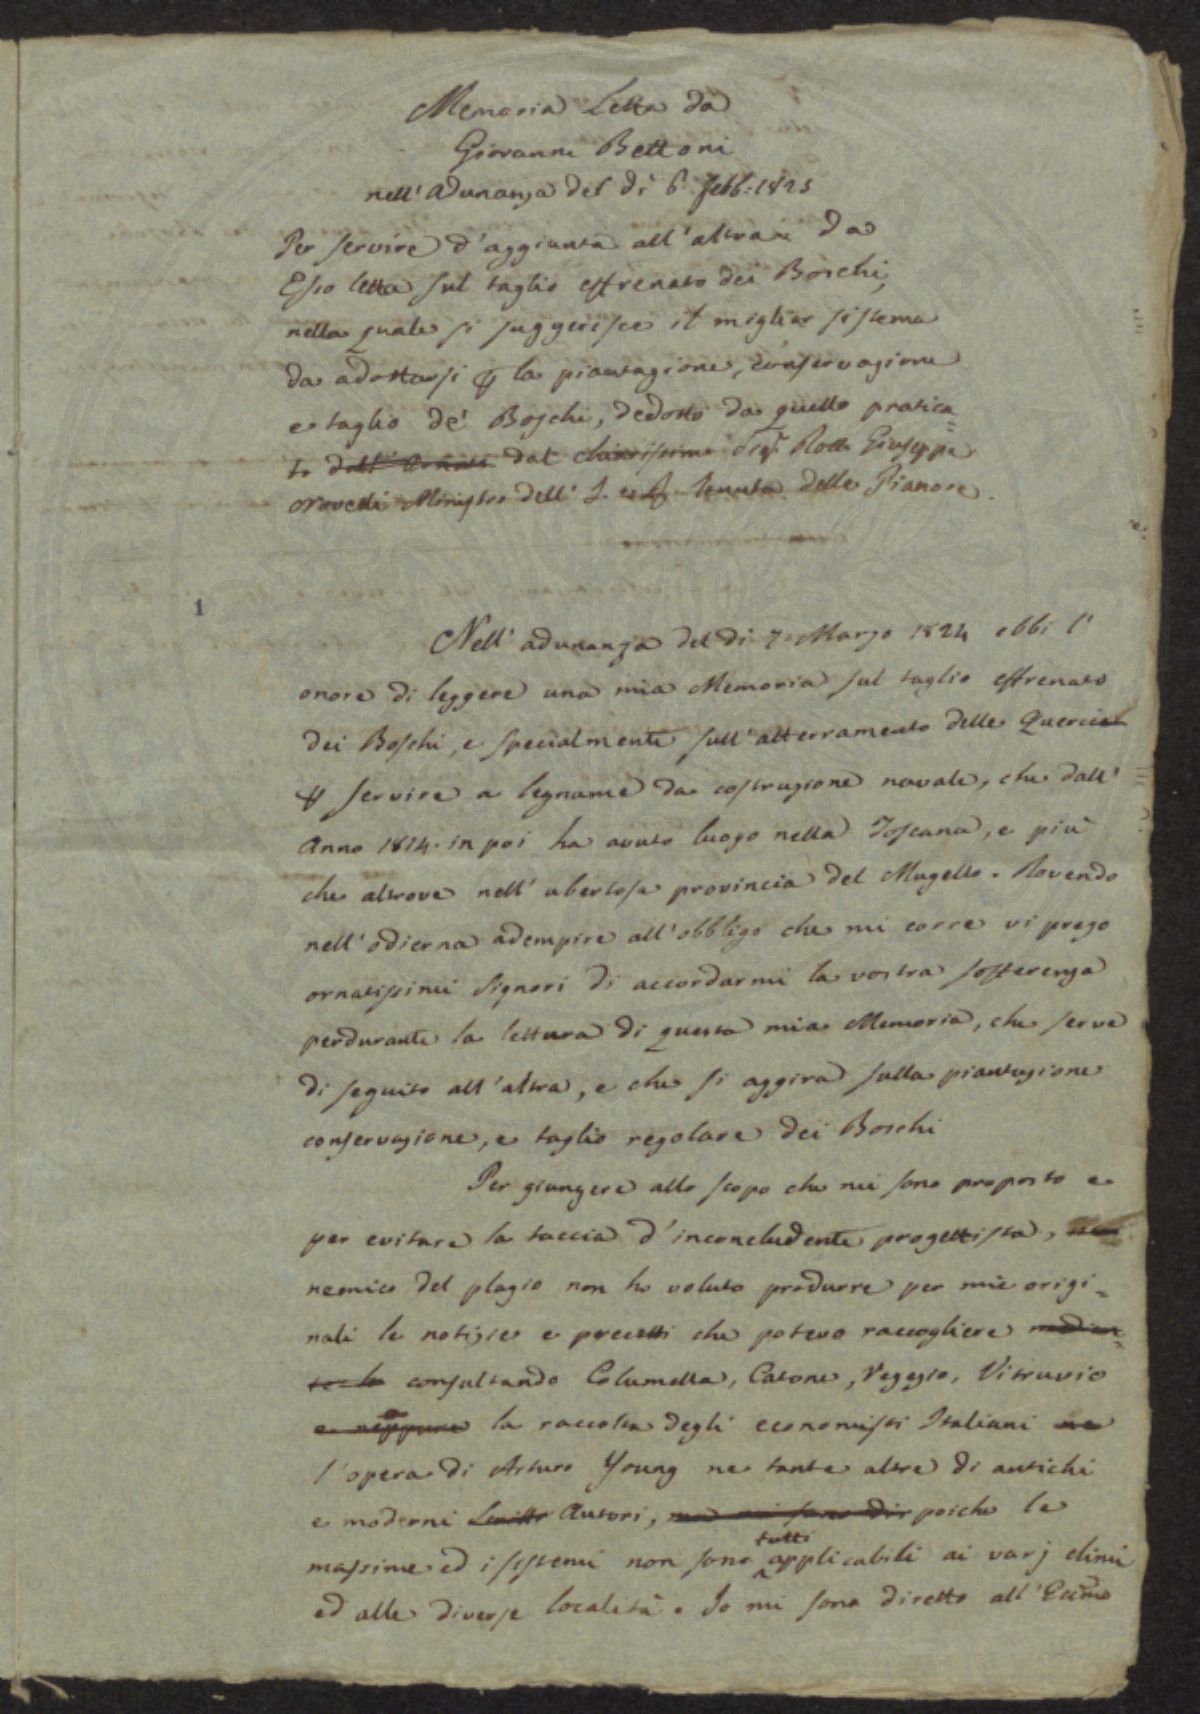 Memoria Letta da
Giovanni Bettoni
nell'adunanza del dì 6 Febb: 1825
Per servire d'aggiunta all'altra da
Esso letta sul taglio effrenato dei Boschi,
nella quale si suggerisce il miglior sistema
da adottarsi per la piantagione, conservazione
e taglio de' Boschi, dedotto da quello pratica=
to dal Sigr. Giuseppe
Ministro dell' I. e R. Tenuta delle Pianore.
1
Nell'adunanza del di 7 Marzo 1824 ebbi l'
onore di leggere una mia Memoria sul taglio effrenato
dei Boschi, e specialmente sull'atterramento delle Quercie
per servire a legname da costruzione navale, che dall'
Anno 1814. in poi ha avuto luogo nella Toscana, e più
che altrove nell'ubertosa provincia del Mugello. Dovendo
nell'odierna adempire all'obbligo che mi corre vi prego
ornatissimi Signori di accordarmi la vostra sofferenza
perdurante la lettura di questa mia Memoria, che serve
di seguito all'altra, e che si aggira sulla piantazione
conservazione, e taglio regolare dei Boschi
Per giungere allo scopo che mi sono proposto e
per evitare la taccia d'inconcludente progettista,
nemico del plagio non ho voluto produrre per mie origi=
nali le notizie e precetti che potevo raccogliere
consultando Columella, Catone, Vegezio, Vitruvio
e neppure la raccolta degli economisti Italiani ne
l'opera di Arturo Young ne tante altre di antichi
e moderni Autori, ma mi sono dir poichè le
massime ed i sistemi non sono tutti applicabili ai varj climi
ed alle diverse località. Io mi sono diretto all'Eccmo